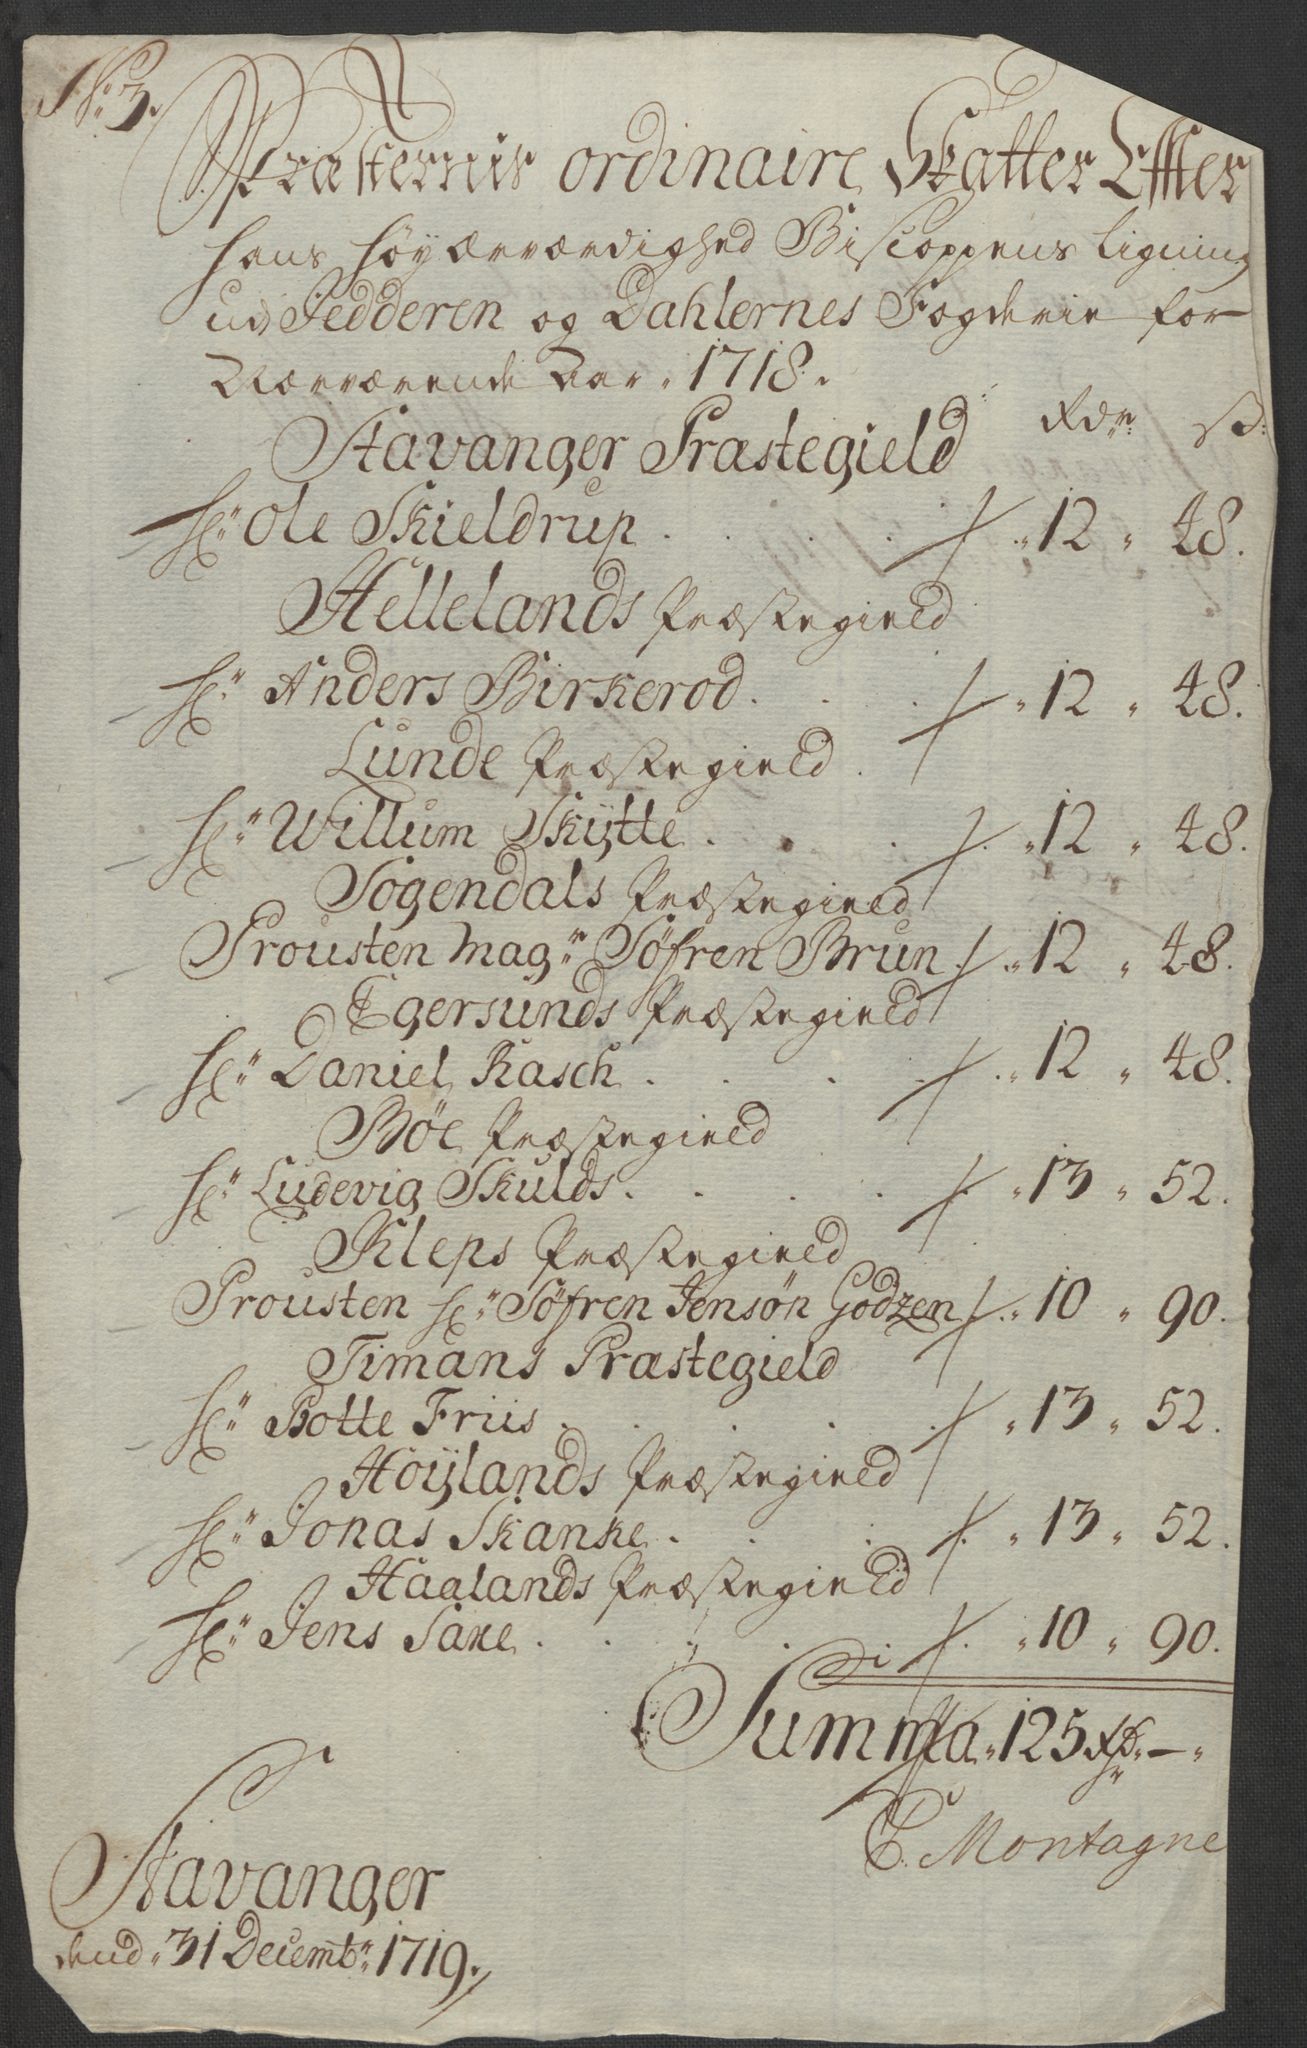 No: 3.
Præsternis ordinaire Skatter Effter
hans höyærværdighed Biscoppens Ligning
ud Jedderen og Dahlernes Fogderie for
Nærværende Aar 1718.
Rdr: ß:
Stavanger Præstegield
Hr: Ole Skieldrup . . . . 12 " 48.
Hellelands Præstegield
Hr: Anders Birkerod . . . 12 " 48.
Lunde Præstegield .
Hr: Willum Skÿtte . . . 12 " 48.
Sogendals Præstegield
Prousten Magr: Söfren Brun . 12 " 48.
Egersunds Præstegield
Hr: Daniel Rasch . . . 12 " 48.
Böe Præstegield
Hr: Ludevig Skulds . . . . 13 " 52.
Kleps Præstegield
Prousten Hr: Söfren Jensön Godzen . 10 " 90.
Timans Præstegield
Hr: Botte Friis . . . . 13 " 52.
Höÿlands Præstegield
Hr: Jonas Skanke . . . 13 " 52.
Haalands Præstegield
Hr: Jens Saxe . . . . 10 " 90.
Summa 125 Rdr: — "
C. Montagne
Stavanger
dend 31 Decembr: 1719.